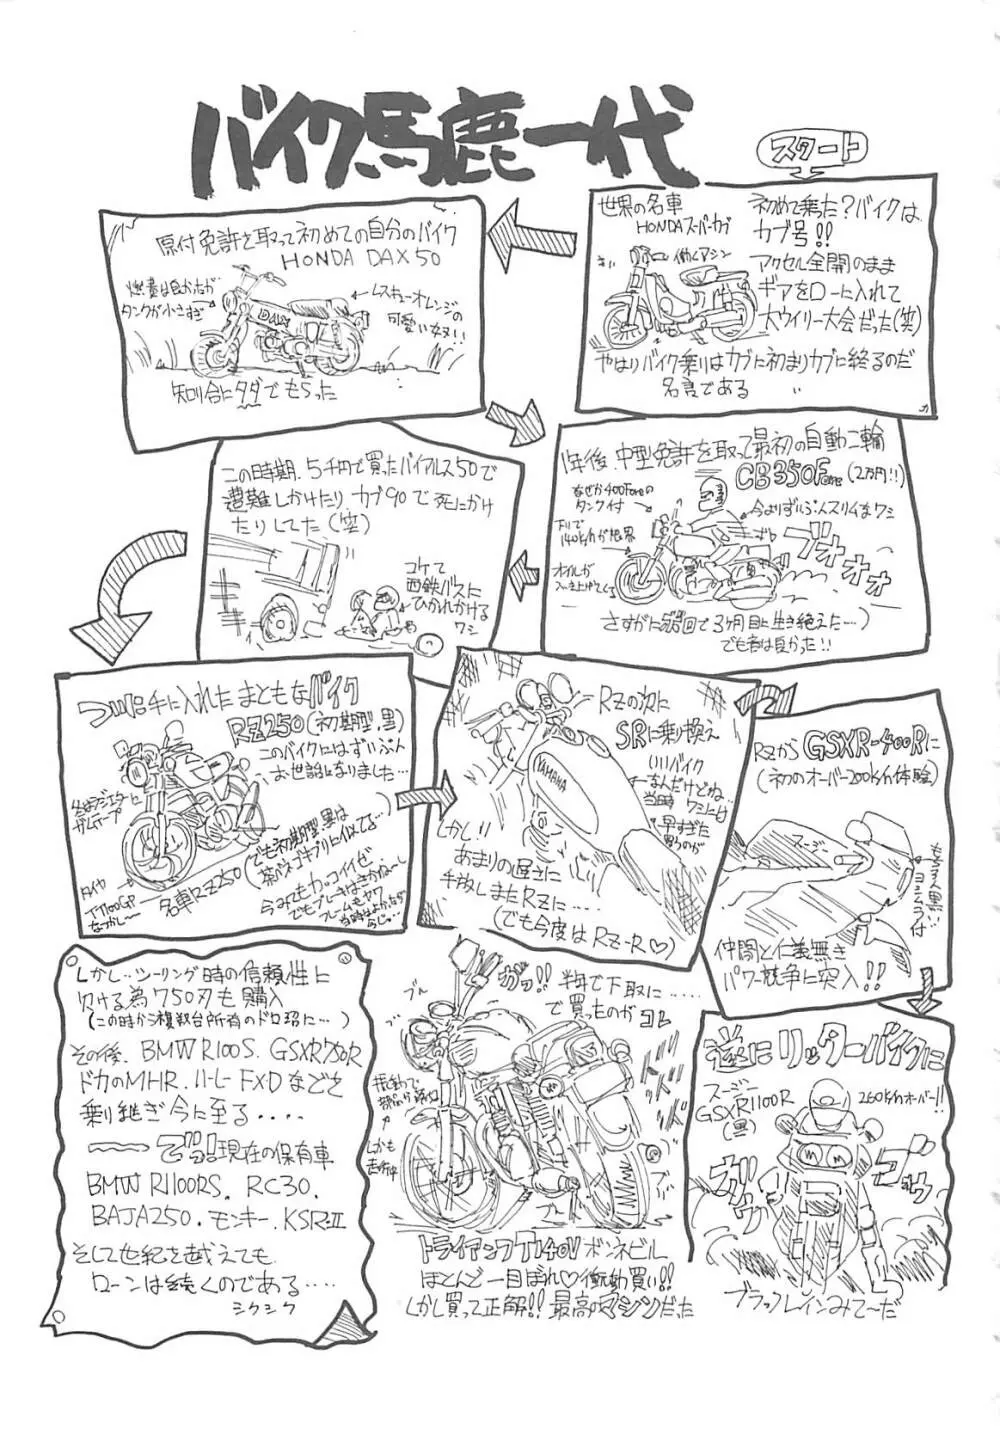 バイク馬鹿一代
スタート
世界の名車
HONDA スーパーカブ
働くマシン
初めて乗った？バイクは
カブ号!!
アクセル全開のまま
ギアをローに入れて
大ウイリー大会だった(笑)
やはりバイク乗りはカブに初まりカブに終るのだ
名言である
原付免許を取って初めての自分のバイク
HONDA DAX50
燃費は良かったが
タンクが小さすぎ
レスキューオレンジの
可愛い奴!!
DAX
知り合にタダでもらった
1年後、中型免許を取って最初の自動二輪
CB350Four (2万円!!)
なぜか400Fourの
タンク付
今よりずいぶんスリムなワシ
下りで
140km/hが限界
ブオォォォ
オイルが
さすがにボロ回って3ヶ月目に生き絶えた…)
でも音は良かった!!
この時期、5千円で買ったバイアルス50で
遭難しかけたり カブ90で死にかけ
たりしてた(笑)
コケて
西鉄バスに
ひかれかける
ワシ
ついに手に入れたまともなバイク
RZ250(初期型.黒)
このバイクにはずいぶん
お世話になりました…
ラジエターに
ガムテープ
タイヤ
TT100GP
なつかし〜
名車RZ250
(でも初期型.黒は
茶バネゴキブリに似てる…)
今みてもカッコイイゼ
でもブレーキはきかねーし
フレームもヤワ
RZの次に
SRに乗り換え
YAMAHA
いいバイク
なんだけどね…
当時 ワシには
早すぎた
しかし!!
あまりの遅さに
手放しまたRZに……
(でも今度はRZ-R♡)
RZから GSXR-400Rに
(初のオーバー200km/h体験)
スージー
もちろん黒!!
ヨシムラ付
仲間と仁義無き
パワー競争に突入!!
遂にリッターバイクに
スージー
GSXR1100R
(黒)
260km/hオーバー!!
ゴォウゥ
ブラックレインみて〜だ
ガッ!!
半年で下取に……
で買ったのがコレ
ブル
ドッドッドッ
しかも
走行中
トライアンフ T140V ボンネビル
ほとんど一目ぼれ♡ 衝動買い!!
しかし買って正解!! 最高のマシンだった
しかし…ツーリング時の信頼性に
欠ける為750刃も購入
(この時から複数台所有のドロ沼に…)
その後、BMW R100S. GSXR750R
ドカのMHR. ハーレーFXDなどを
乗り継ぎ今に至る....
〜でっ!現在の保有車
BMW R1100RS. RC30.
BAJA250. モンキー. KSR-Ⅱ
そして世紀を越えても
ローンは続くのである....
シクシク